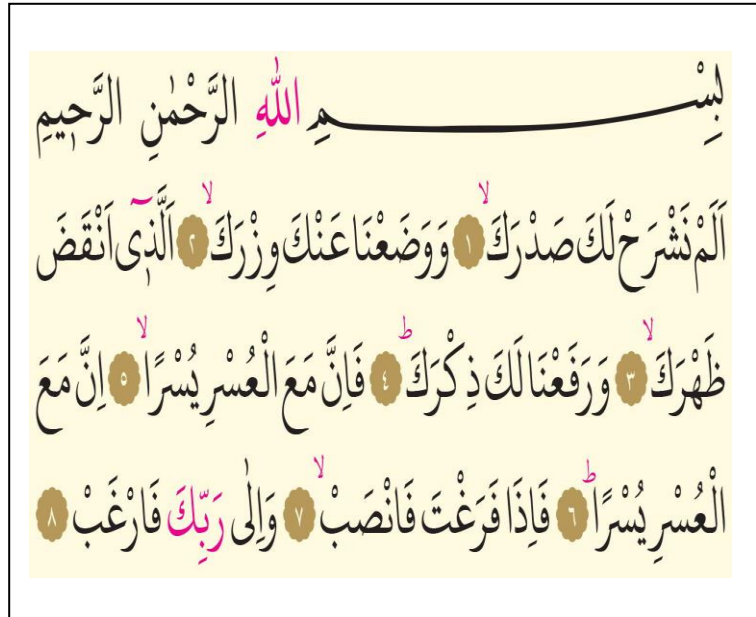 بِسْــــــــــــمِ اللّٰهِ الرَّحْمٰنِ الرَّح۪يمِ
اَلَمْ نَشْرَحْ لَكَ صَدْرَكَۙ ﴿١﴾ وَوَضَعْنَا عَنْكَ وِزْرَكَۙ ﴿٢﴾ اَلَّذ۪ٓى اَنْقَضَ
ظَهْرَكَۙ ﴿٣﴾ وَرَفَعْنَا لَكَ ذِكْرَكَۜ ﴿٤﴾ فَاِنَّ مَعَ الْعُسْرِ يُسْرًاۙ ﴿٥﴾ اِنَّ مَعَ
الْعُسْرِ يُسْرًاۜ ﴿٦﴾ فَاِذَا فَرَغْتَ فَانْصَبْۙ ﴿٧﴾ وَاِلٰى رَبِّكَ فَارْغَبْ ﴿٨﴾